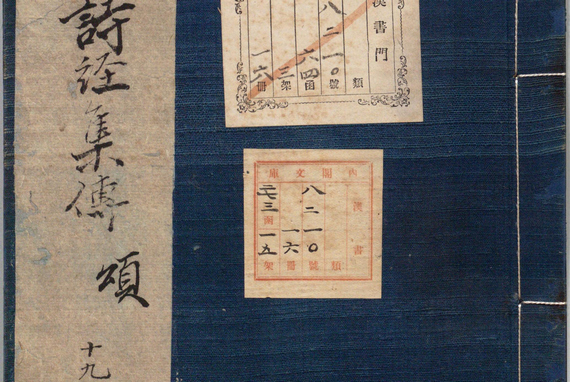 詩経集傳
頌
十九
漢書門
類
八二一〇號
六四函
三架
一六冊
内閣文庫
漢書
類
八二一〇號
一六冊
二七三函
一五架